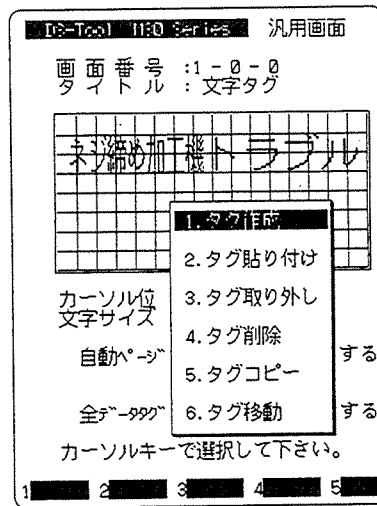 汎用画面
画面番号 :1-0-0
タイトル : 文字タグ
ネジ締め加工機トラブル
1.タグ作成
2.タグ貼り付け
3.タグ取り外し
4.タグ削除
5.タグコピー
6.タグ移動
カーソル位
文字サイズ
自動ページ する
全データタグ する
カーソルキーで選択して下さい。
1 2 3 4 5